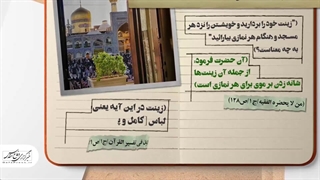 ("زینت خود را بردارید و خویشتن را نزد هر
مسجد و هنگام هر نمازی بیارائید"
به چه معناست؟)
(آن حضرت فرمود:
از جمله آن زینت‌ها
شانه زدن بر موی برای هر نمازی است)
(من لا یحضره الفقیه/ج۱/ص۱۲۸)
(زینت در این آیه یعنی
لباس) کامل و